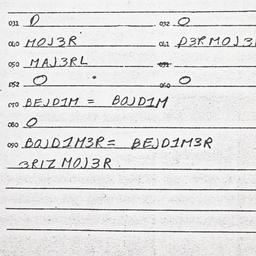 031 D 032 O
040 MOJ3R 041 D3RMOJ3
050 MAJ3RL 051
052 O 060 O
070 BEJD1M = BOJD1M
080 O
090 BOJD1M3R = BEJD1M3R
3RIZ MOJ3R